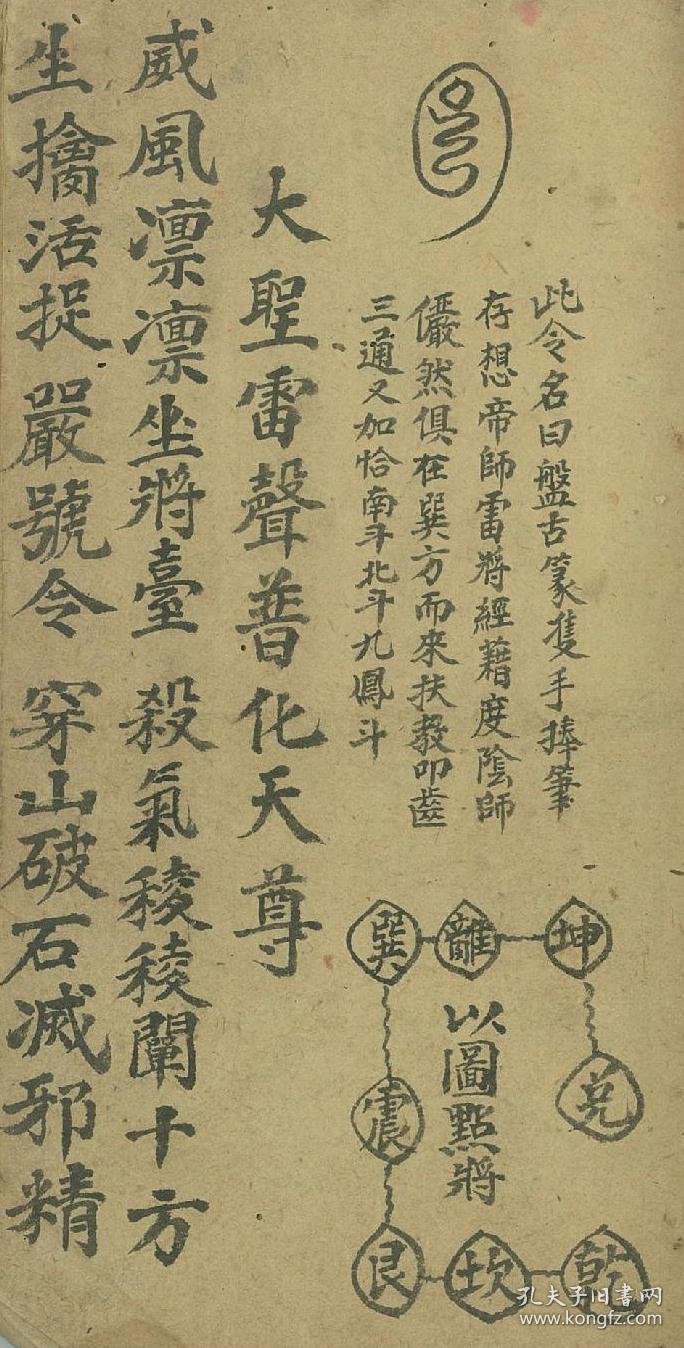 此令名曰盤古篆隻手捧筆
存想帝師雷將經藉度陰師
儼然俱在巽方而來扶教叩齒
三通又加恰南斗北斗九鳳斗
坤 離 巽
兌 震
乾 坎 艮
以圖點將
大聖雷聲普化天尊
威風凛凛坐將臺 殺氣稜稜闡十方
生擒活捉嚴號令 穿山破石滅邪精
孔夫子旧书网
www.kongfz.com